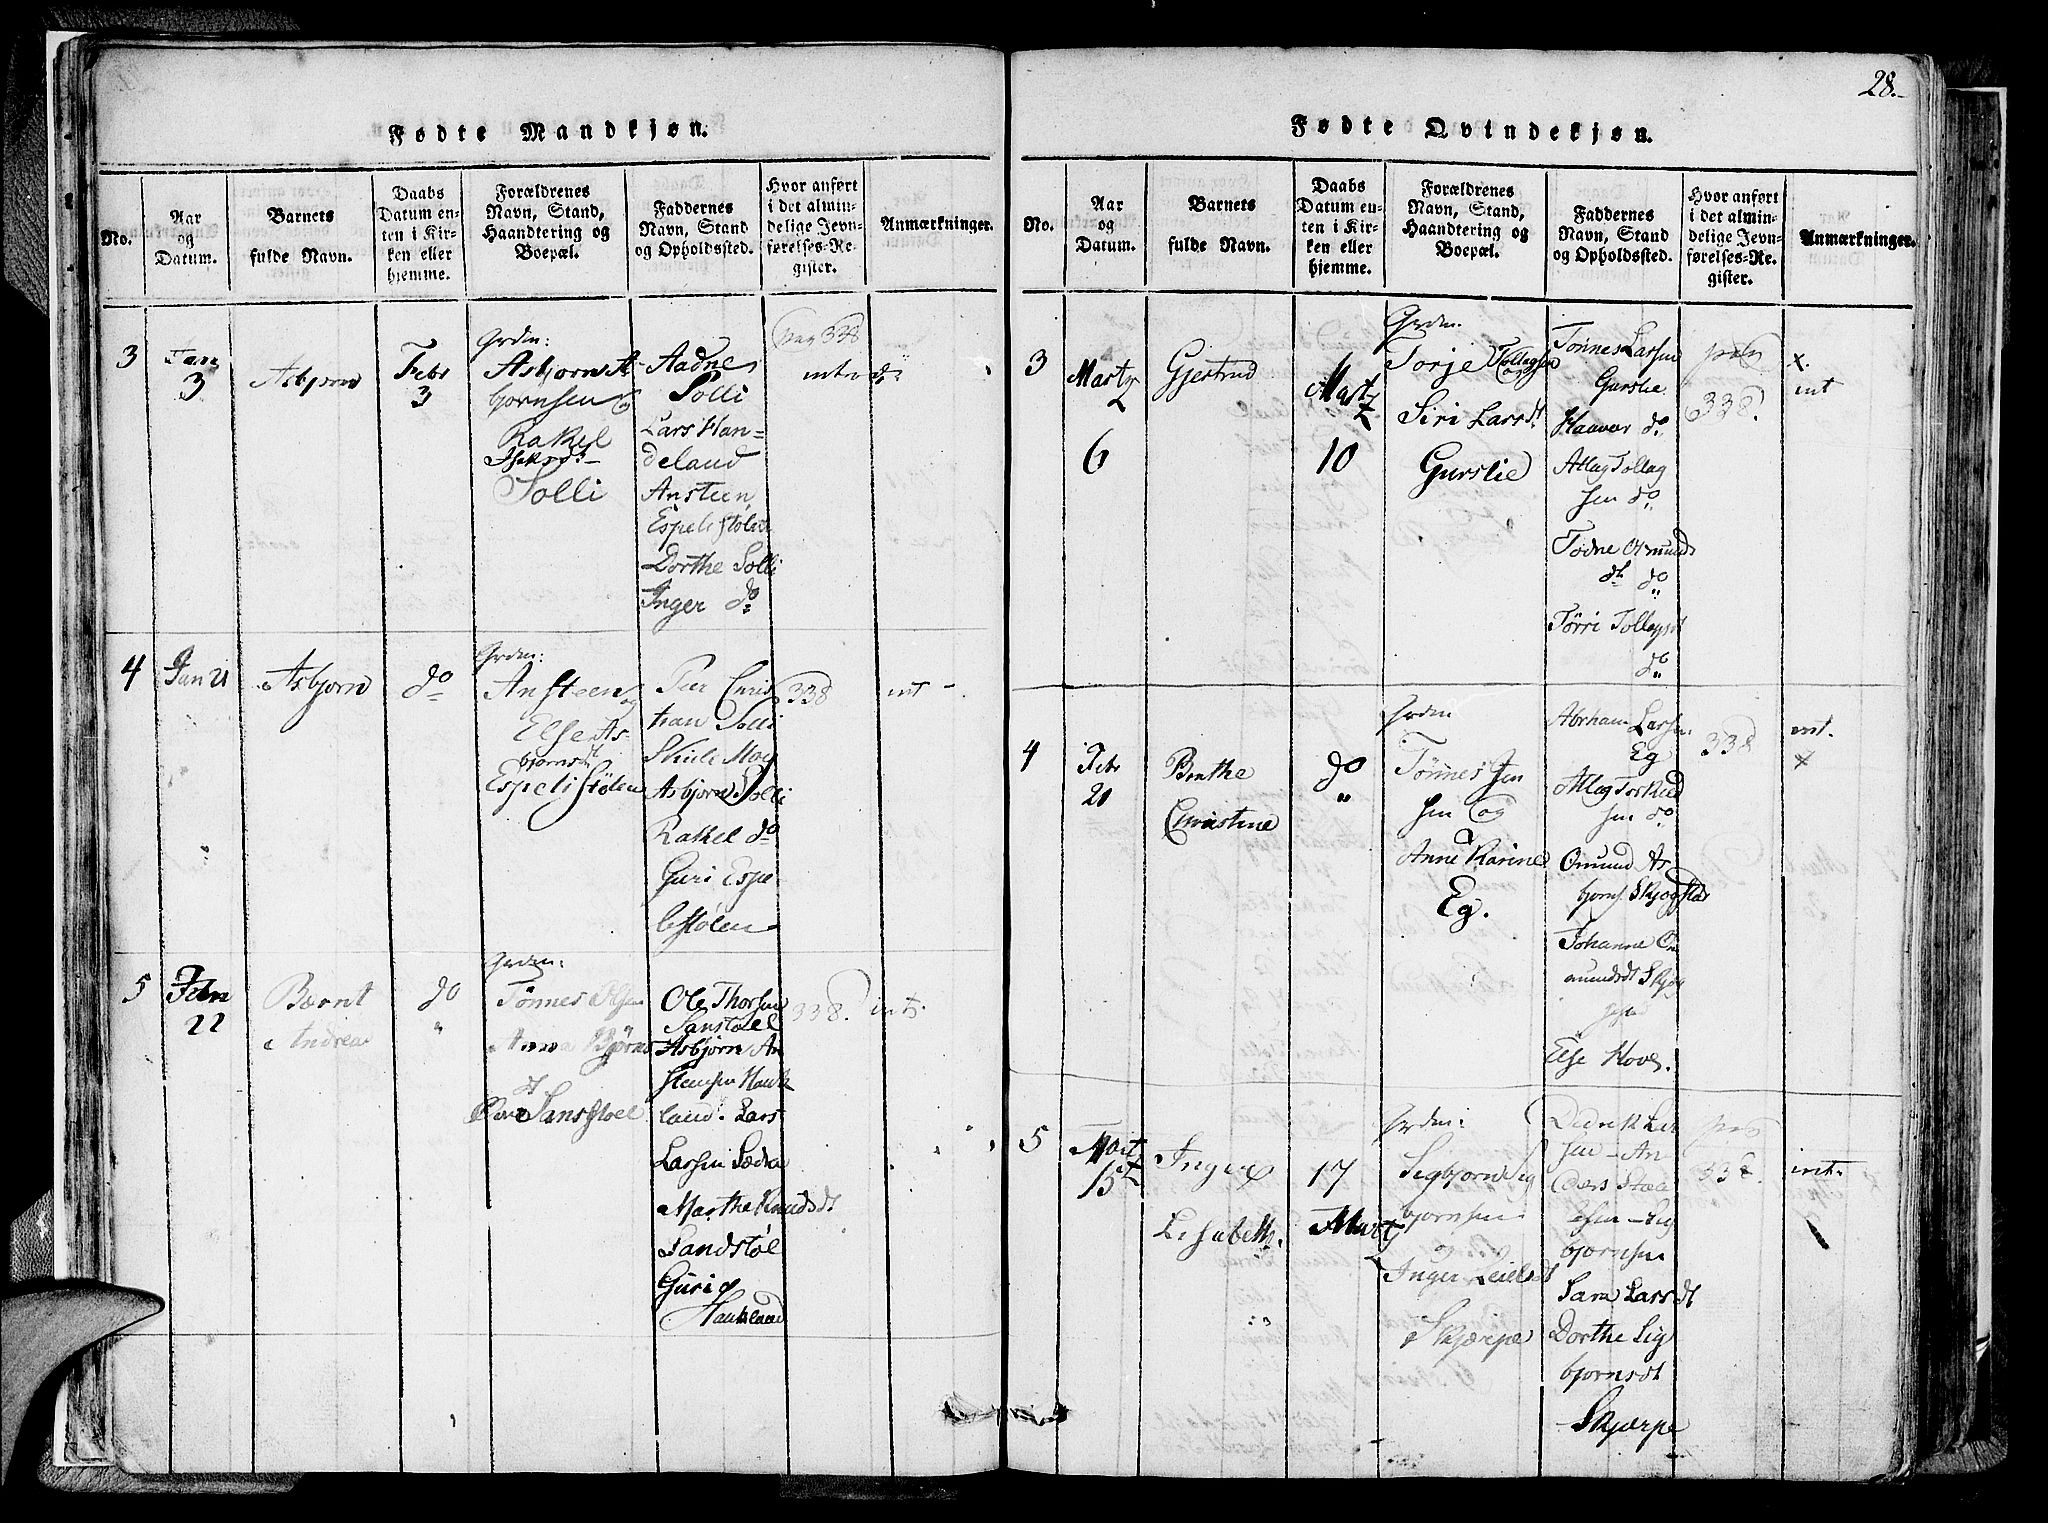 28.
Fødte Mandkjøn.
No.
Aar
og
Datum.
Barnets
fulde Navn.
Daabs
Datum en-
ten i Kir-
ken eller
hjemme.
Forældrenes
Navn, Stand,
Haandtering og
Boepæl.
Faddernes
Navn, Stand
og Opholdssted.
Hvor anført
i det almin-
delige Jevn-
førelses-Re-
gister.
Anmærkninger.
3
Jan
3
Asbjørn
Febr
3
Grdm:
Asbjorn As
bjornsen og
Rakel
Solli
Aadne
Solli
Lars Han=
deland
Ansteen
Espelistølen
Dorthe Solli
Inger do
pag 338
int
4
Jan 21
Asbjorn
do
Grdm:
Ansteen
og
Else As-
bjornsdt
Espelistølen
Peer Chris
tian Solli
Skule Moy
Asbjorn Solli
Rakel do
Guri Espe
listølen
338
int
5
Febr
22
Bærnt
Andreas
do
Grdm:
Tønnes Olsen
Anna Bjørns
dt
Sanstoel
Ole Thorsen
Sanstoel
Asbjørn An
stensen Hauk
land. Lars
Larsen Sædra
Marthe Knudsdt
Sandstøl
Guri
Haukland
338.
int.
Fødte Qvindekjøn.
No.
Aar
og
Datum.
Barnets
fulde Navn.
Daabs
Datum en-
ten i Kir-
ken eller
hjemme.
Forældrenes
Navn, Stand,
Haandtering og
Boepæl.
Faddernes
Navn, Stand
og Opholdssted.
Hvor anført
i det almin-
delige Jevn-
førelses-Re-
gister.
Anmærkninger.
3
Martz
6
Gjertrud
Martz
10
Grdm.
Torje Tollagsen
og
Siri Larsdt
Gurslie
Tønnes Larsen
Gurslie
Haavor do
Atlag Tollag
sen do
Todne Omunds
dt do
Tørri Tollagsdt
do
pag
338.
x.
int
4
Febr
21
Berthe
Christine
do
Grdm
Tønnes Jen
sen og
Anne Karine
Eg.
Abraham Larsen
Eg
Atlag Torkild
sen do
Omund As
bjorns. Skjogstad
Johanne Om
mundsdt Skjog
stad
Else Hove.
338
int.
x
5
Martz
15
Inger
Lisabeth.
17
Martz
Grdm:
Sigbjorn Sig
bjornsen
og
Inger Leielsdt
Skjærpe
Didrik Lar
sen - An
ders Stæle
esen - Sig
bjornsen
Sara Larsdt
Dorthe Sig
bjornsdt
Skjærpe
pag
338.
int.